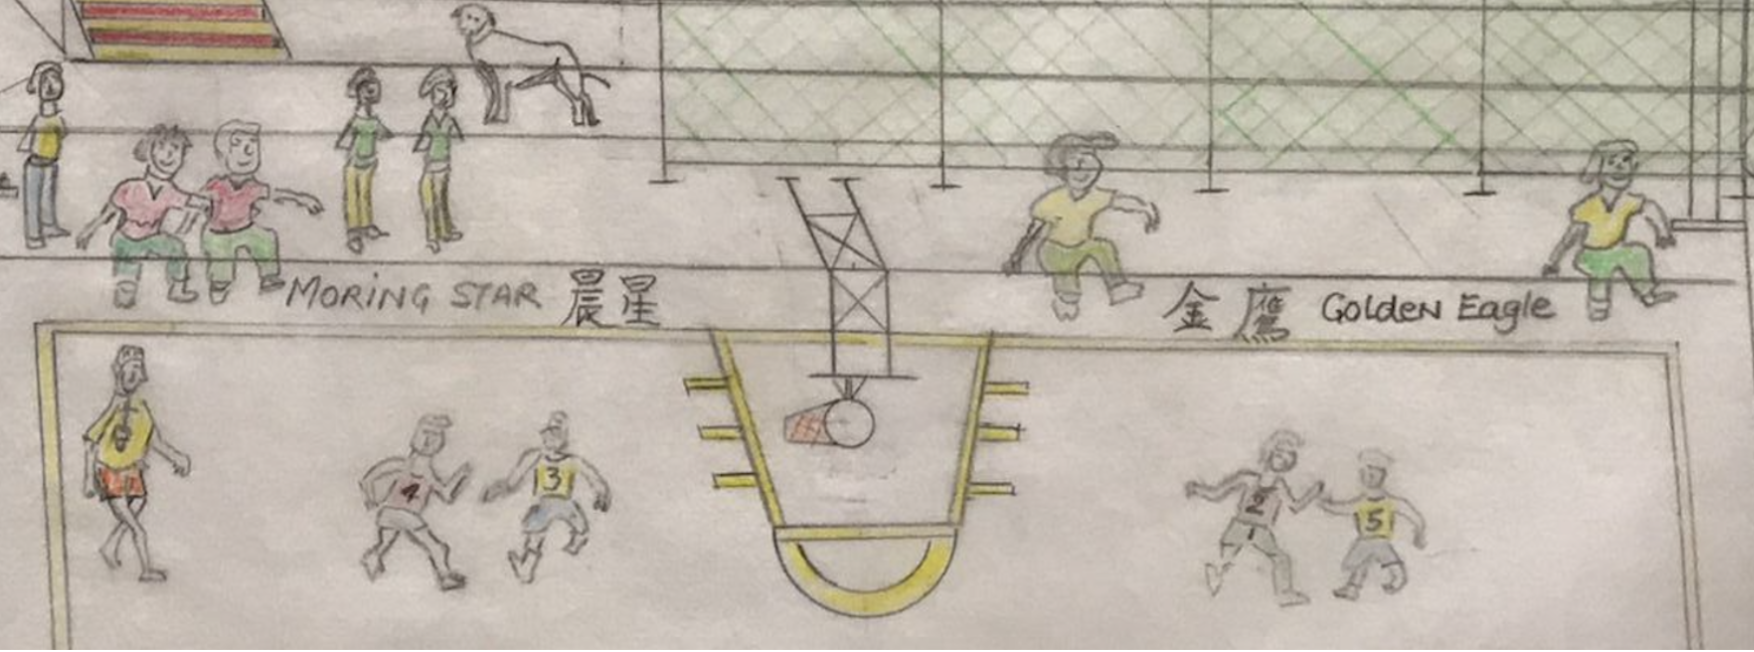 MORING STAR 晨星
金鹰 Golden Eagle
4 3
2 5